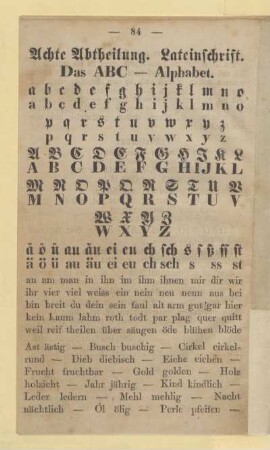 — 84 —
Achte Abtheilung. Lateinschrift.
Das ABC — Alphabet.
a b c d e f g h i j k l m n o
a b c d e f g h i j k l m n o
p q r s t u v w x y z
p q r s t u v w x y z
A B C D E F G H I J K L
A B C D E F G H I J K L
M N O P Q R S T U V
M N O P Q R S T U V
W X Y Z
W X Y Z
ä ö ü au äu ei eu ch sch s ſ ß ſſ ſt
ä ö ü au äu ei eu ch sch s ss st
an am man in ihn im ihm ihnen mir dir wir
ihr vier viel weiss ein nein neu neun nus bei
bin breit du dein sein faul alt arm gut gar hier
kein kaum lahm roth todt par plag quer quitt
weil reif theilen über säugen öde blühen blöde
Ast ästig — Busch buschig — Cirkel cirkel-
rund — Dieb diebisch — Eiche eichen —
Frucht fruchtbar — Gold golden — Holz
holzicht — Jahr jährig — Kind kindlich —
Leder ledern — Mehl mehlig — Nacht
nächtlich — Öl ölig — Perle pfeifen —